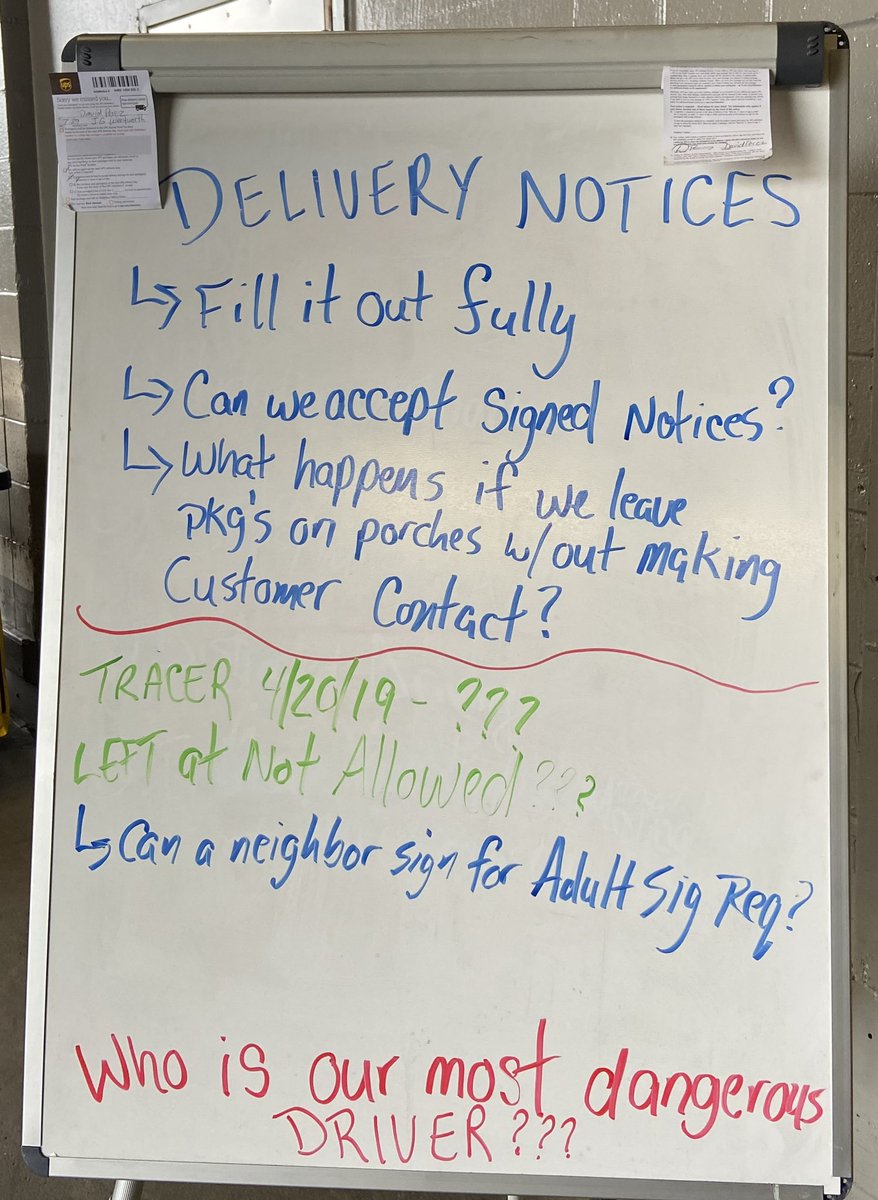 ups
Sorry we missed you...
DELIVERY NOTICES
↳ Fill it out fully
↳ Can we accept Signed Notices?
↳ What happens if we leave
pkg's on porches w/out making
Customer Contact?
TRACER 4/20/19 - ???
LEFT at Not Allowed???
↳ Can a neighbor sign for Adult Sig Req?
Who is our most dangerous
DRIVER???